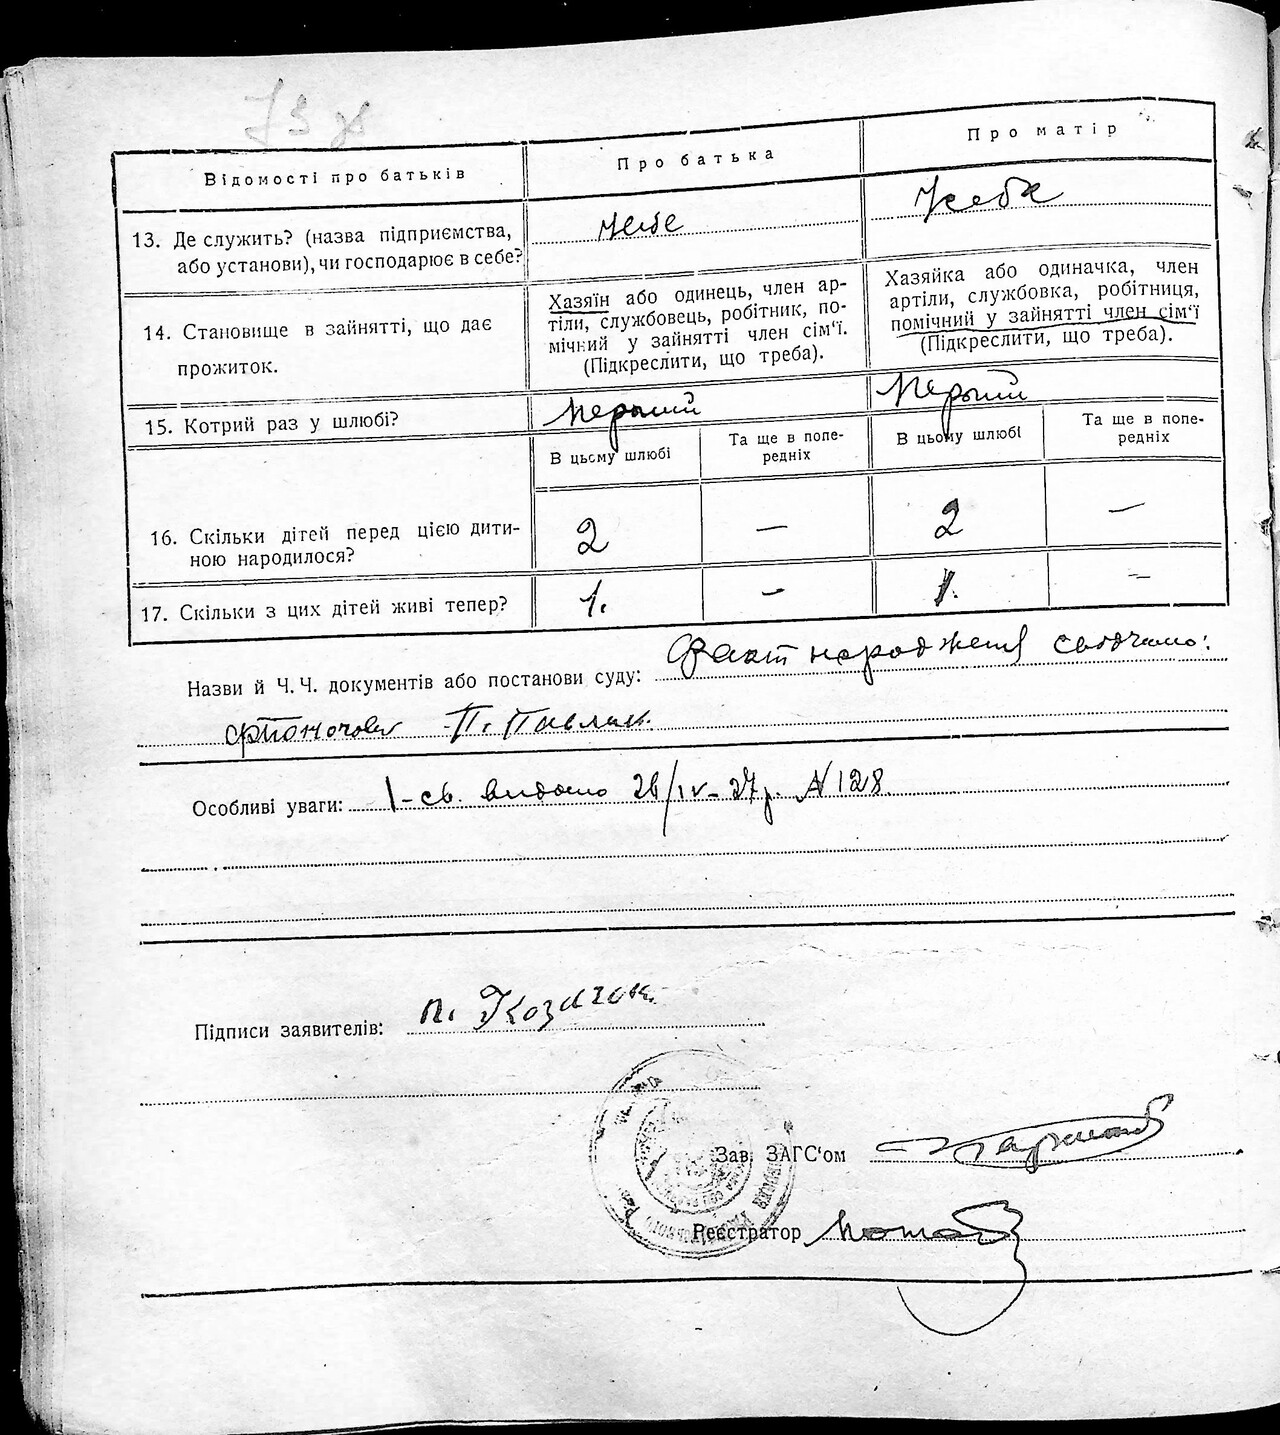 73 зв
Відомості про батьків
Про батька
Про матір
13. Де служить? (назва підприємства,
або установи), чи господарює в себе?
себе
себе
14. Становище в зайнятті, що дає
прожиток.
Хазяїн або одинець, член ар-
тіли, службовець, робітник, по-
мічний у зайнятті член сім'ї.
(Підкреслити, що треба).
Хазяйка або одиначка, член
артіли, службовка, робітниця,
помічний у зайнятті член сім'ї
(Підкреслити, що треба).
15. Котрий раз у шлюбі?
Перший
Перший
В цьому шлюбі
Та ще в попе-
редніх
В цьому шлюбі
Та ще в попе-
редніх
16. Скільки дітей перед цією дити-
ною народилося?
2
—
2
—
17. Скільки з цих дітей живі тепер?
1.
—
1.
—
Назви й Ч. Ч. документів або постанови суду: Факт народження свідчимо:
П. Павлик.
Особливі уваги: І-св. видано 26/IV-27р. N 128.
Підписи заявителів: п. Козачок
Зав. ЗАГС'ом
Реєстратор